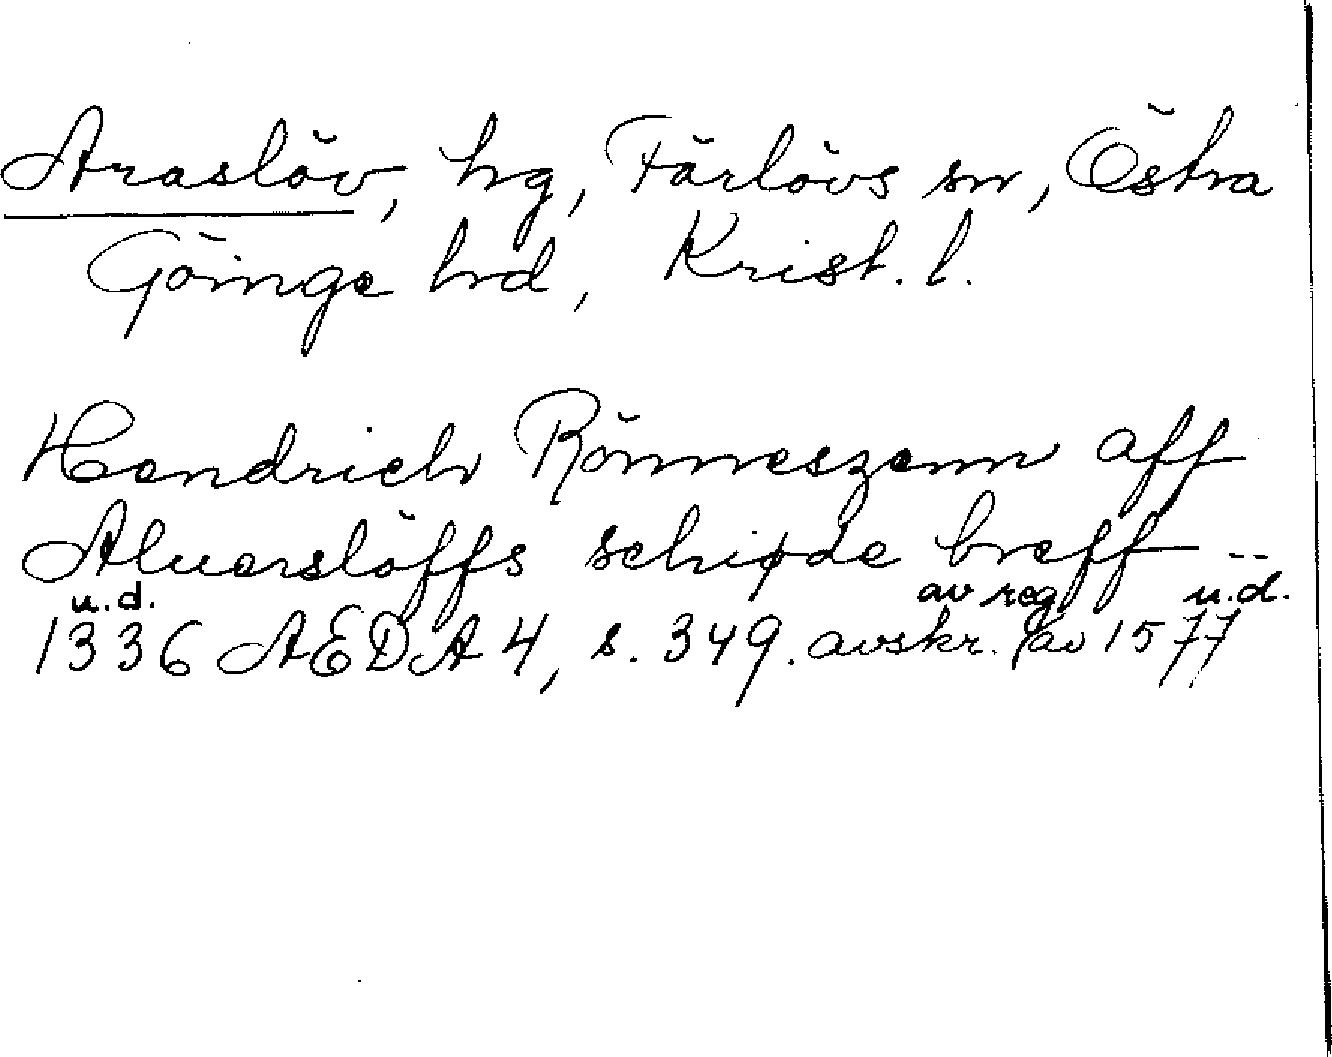 Araslöv, hg, Färlövs sn, Östra
Göinge hd, Krist. l.
Hendrich Rönneszenn aff
Aluerslöffs schiøde breff --
u.d. av reg u.d.
1336 AEDA 4, s. 349. avskr. av 1577